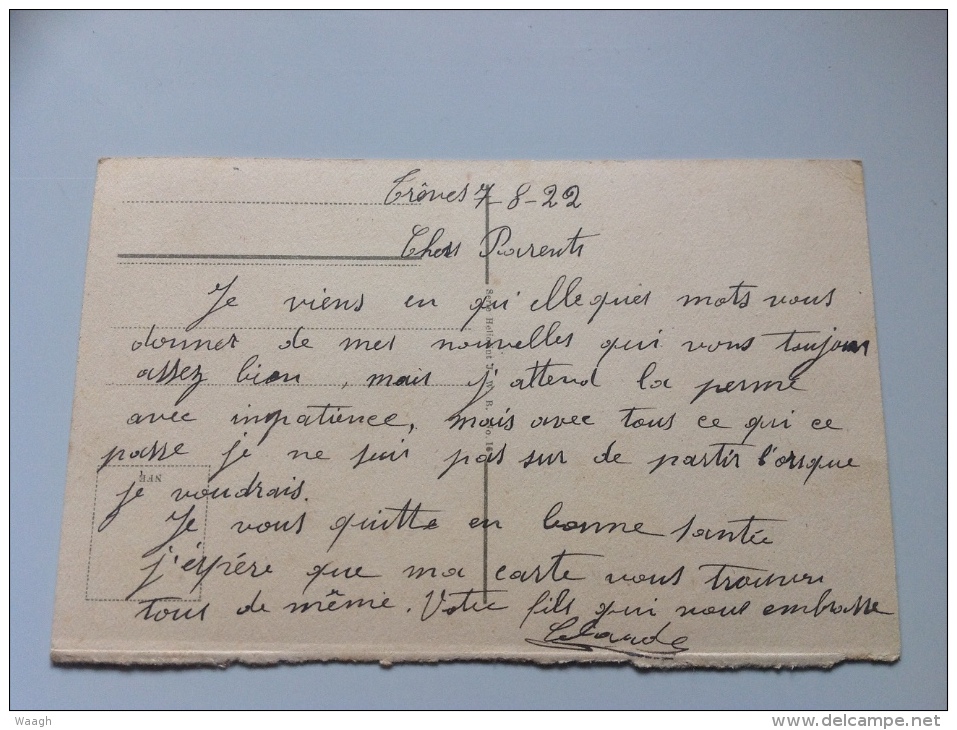 Trêves 7-8-22
Chers Parents
Je viens en qu'elleques mots vous
donner de mes nouvelles qui vont toujours
assez bien, mais j'attend la perme
avec inpatience, mais avec tous ce qui ce
passe je ne suis pas sur de partir l'orsque
je voudrais.
Je vous quitte en bonne santée
j'éspére que ma carte vous trouvera
tous de même. Votre fils qui vous embrasse
Claude
NFB
Waagh
delcampe.net